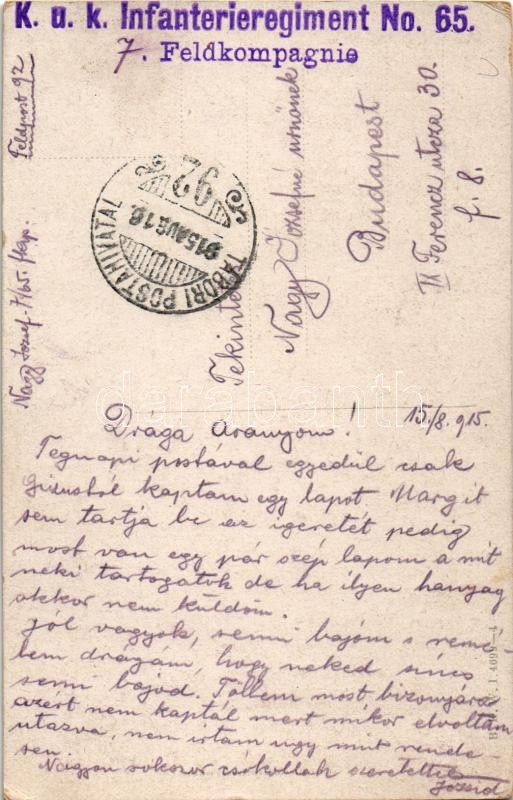 K. u. k. Infanterieregiment No. 65.
7. Feldkompagnie
Feldpost 92
Nagy József 7/65. fkp.
TÁBORI POSTAHIVATAL
915 AUG 18
92
Nagy Józsefné urnőnek
Budapest
IX Ferencz utcza 30.
f. 8.
darabanth
15./8. 915.
Drága Aranyom!
Tegnapi postával egyedül csak
kaptam egy lapot. Margit
sem tartja be az igeretét pedig
most van egy pár szép lapom a mit
neki tartogatok de ha ilyen hanyag
akkor nem küldöm.
Jól vagyok, semmi bajom s remé-
lem drágám, hogy neked sincs
semi bajod. Tőllem most bizonyára
azért nem kaptál mert mikor elvoltam
utazva, nem irtam ugy mint rende-
sen.
Nagyon sokszor csókollak szeretettel
Józsid